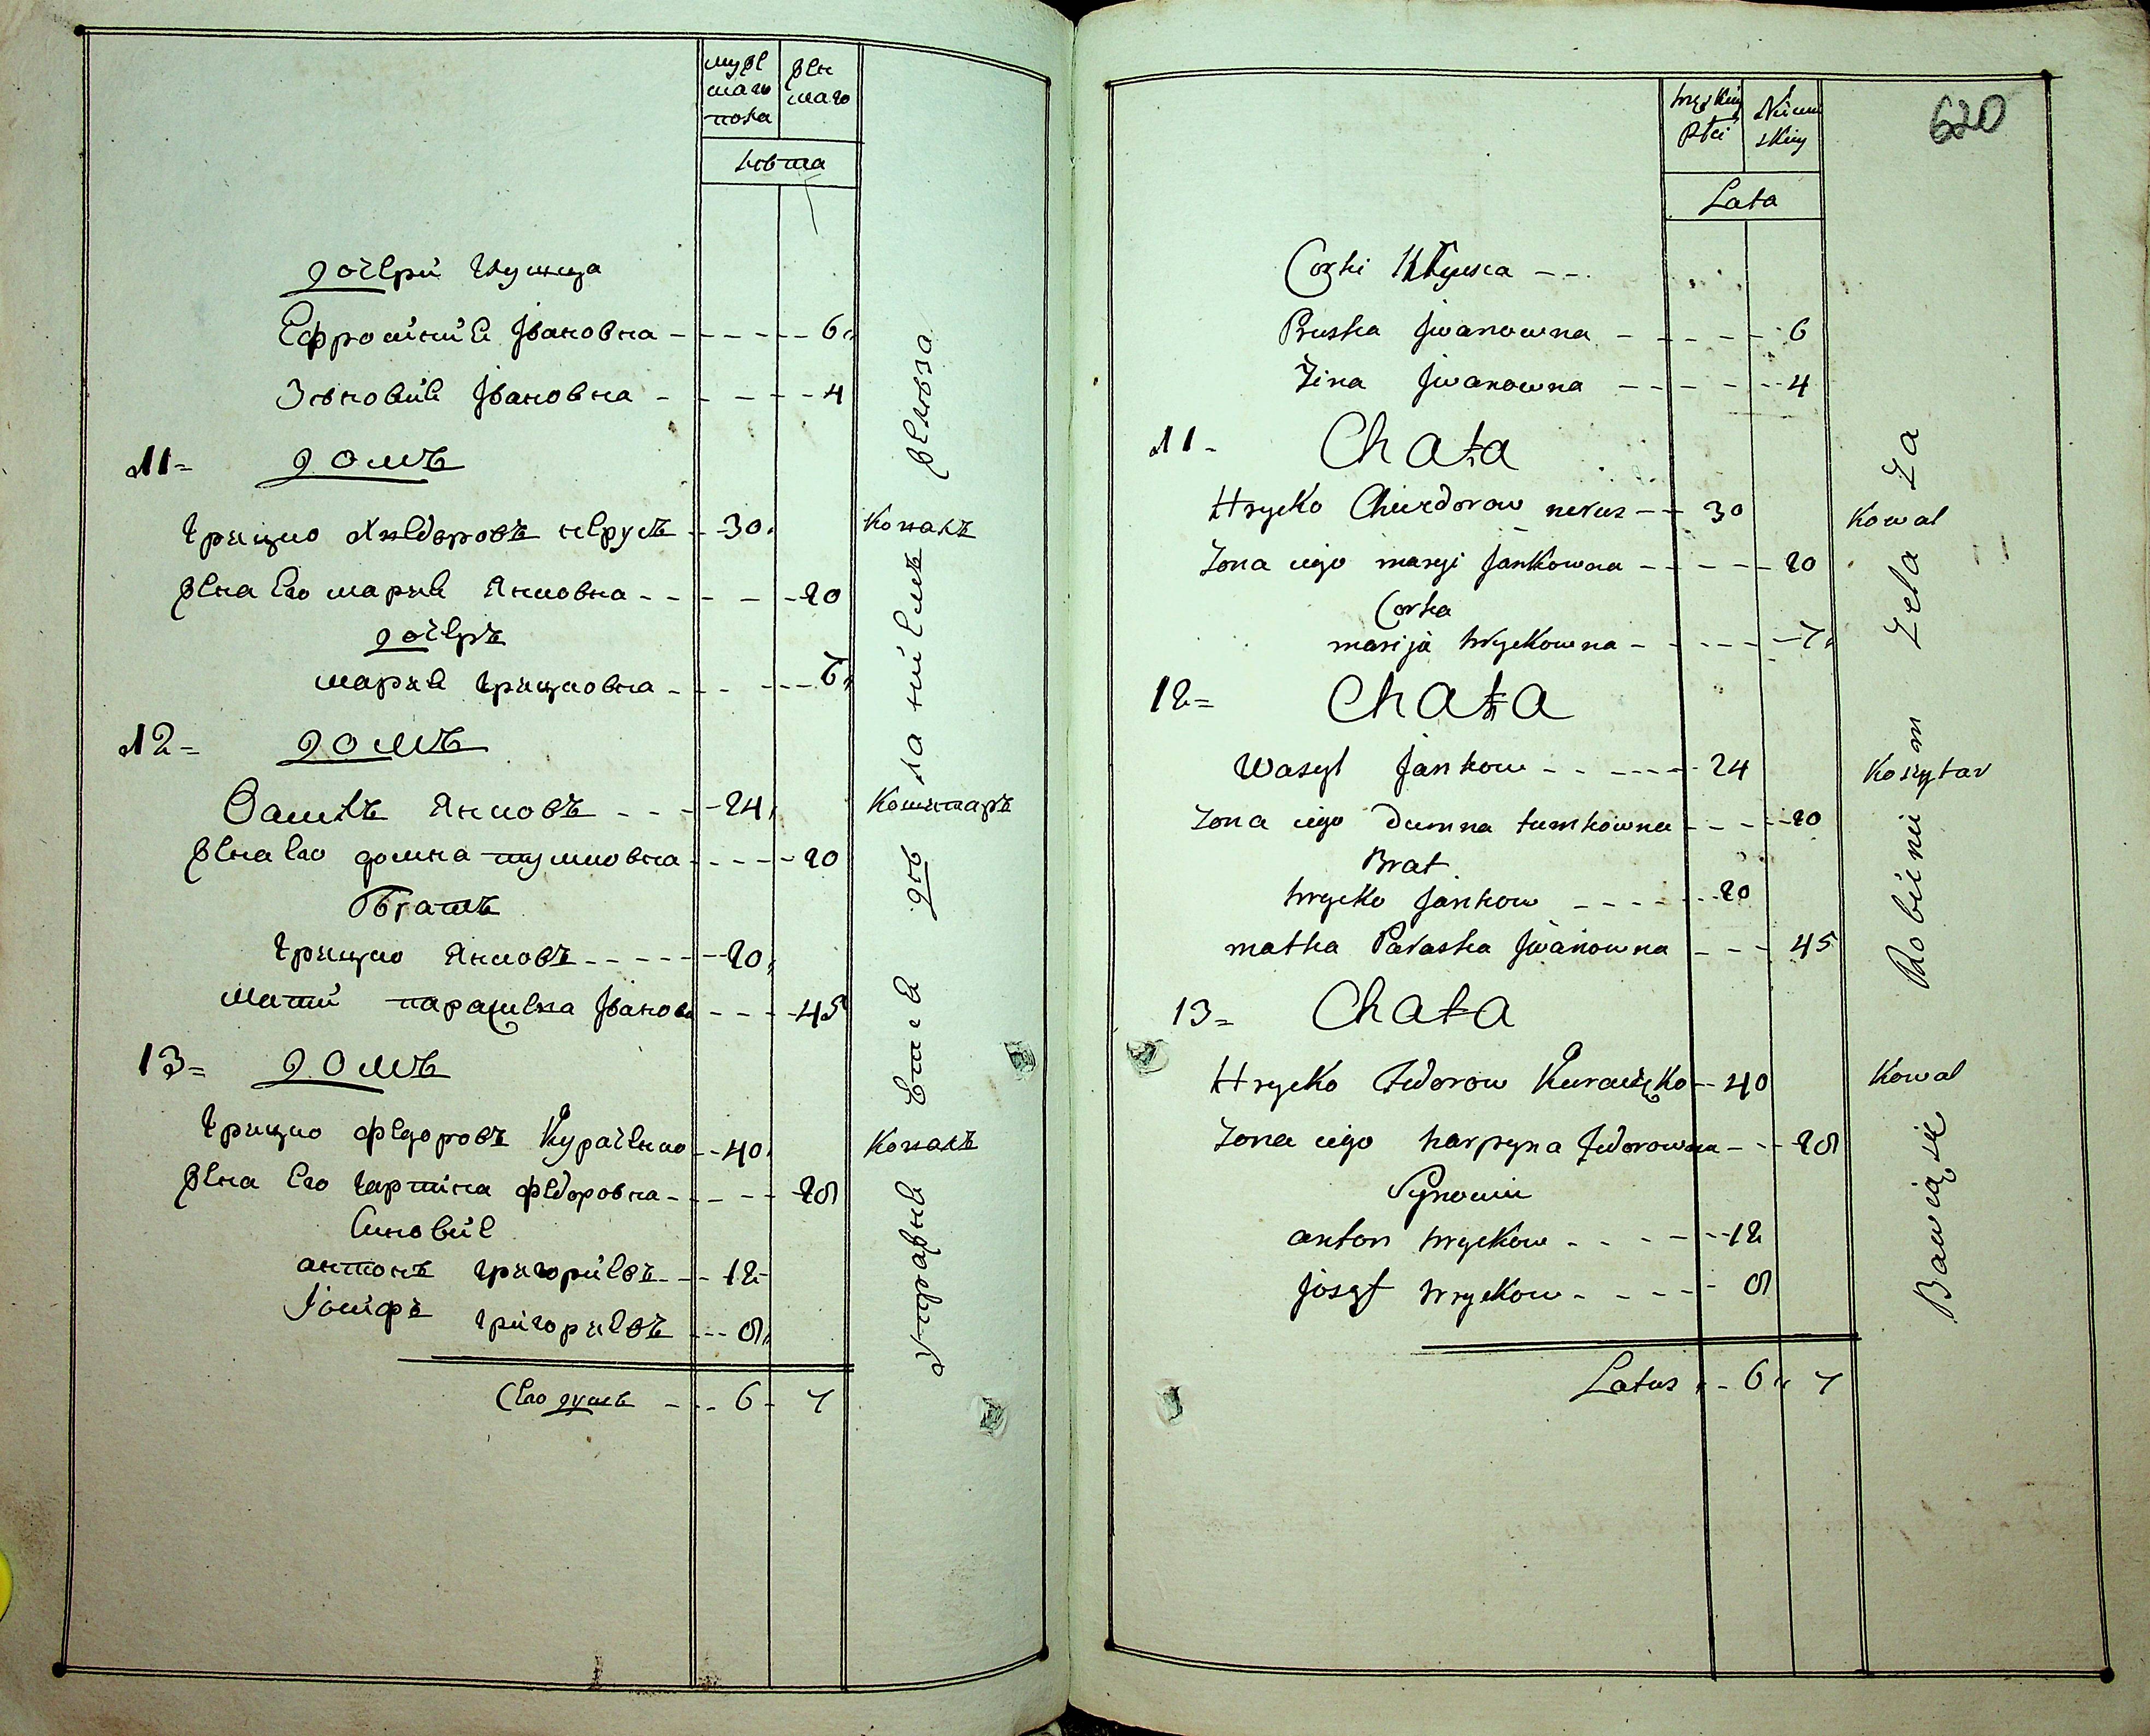 мужескаго пола
женскаго
лѣта
дочери Клуница
Ефросиніе Івановна - - - - 6
Зѣновіе Івановна - - - - 4
11= домъ
Грицко Хведоровъ нерусъ - 30 Ковалъ
жена Его марие Янковна - - - - 20
дочеръ
марие Грицковна - - - - 7
12= домъ
Василъ Янковъ - - - 24 Кошитаръ
жена Его домна тумковна - - - - 20
братъ
Грицко Янковъ - - - - - 20
мати парасцевка Іванова - - - - 45
13= домъ
Грицко Федоровъ Курачечко - - 40 Ковалъ
жена Его Гарпина Федоровна - - - - 28
Синовіе
антонъ григоріевъ - - - 12
Іосифъ григориевъ - - - 8
Сего душъ - - - 6 - 7
Управне Етсе дѣ ланніемъ железа
620
męzkiey płci
Niewieskiey
Lata
Corki Kłyuca - - -
Pruska Jwanowna - - - - - 6
Zina Jwanowna - - - - - 4
11- Chata
Hrycko Chwedorow nerus - - 30 Kowal
Zona iego maryi Jankowna - - - - - 20
Corka
marija hryckowna - - - - - 7
12= Chata
Wasyl Jankow - - - - - - 24 Koszytar
Zona iego Dumna tumkowna - - - - - 20
Brat
hrycko Jankow - - - - - 20
matka Paraska Jwanowna - - - 45
13= Chata
Hrycko Fedorow Kuraczęko - - 40 Kowal
Zona iego harpyna Fedorowna - - - 28
Synowie
anton hryckow - - - - - - 12
Josyf hryckow - - - - - 8
Latus - - 6 - 7
Bawią się Robieniem Zela Za